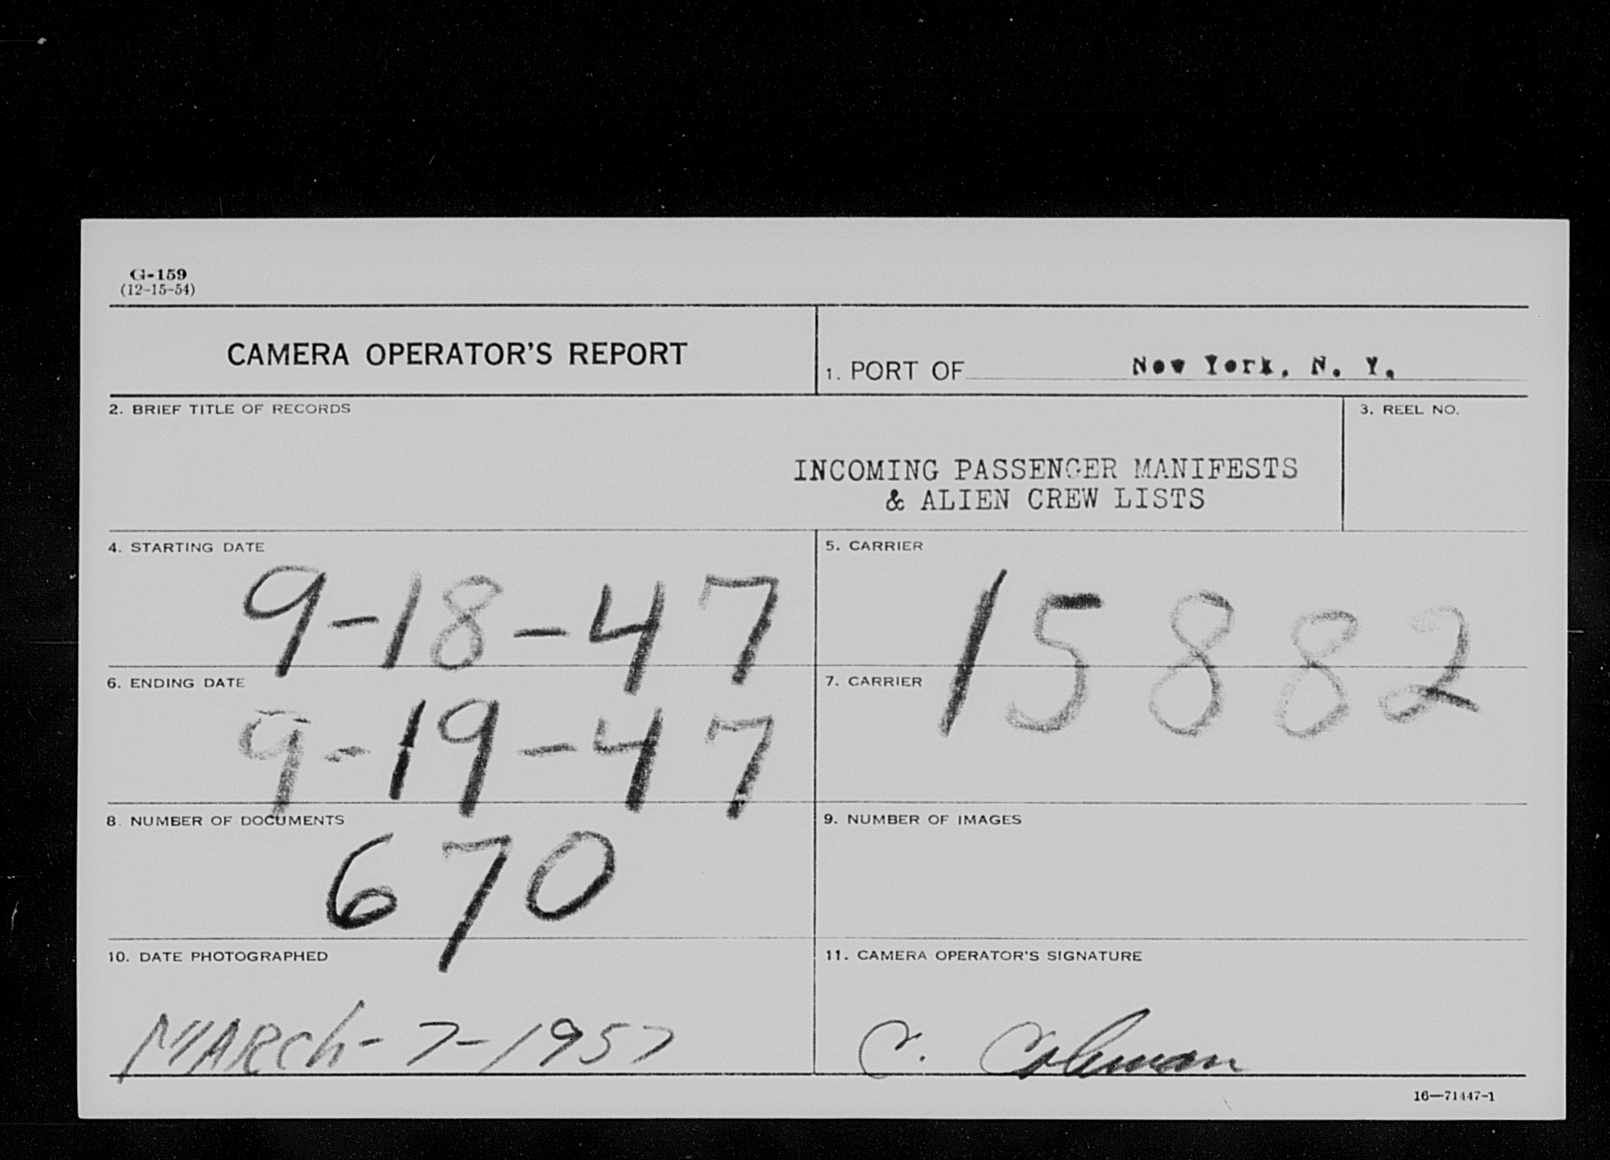 G-159
(12-15-54)
CAMERA OPERATOR'S REPORT
1. PORT OF New York, N. Y.
2. BRIEF TITLE OF RECORDS
3. REEL NO.
INCOMING PASSENGER MANIFESTS
& ALIEN CREW LISTS
4. STARTING DATE
9-18-47
5. CARRIER
15882
6. ENDING DATE
9-19-47
7. CARRIER
8. NUMBER OF DOCUMENTS
670
9. NUMBER OF IMAGES
10. DATE PHOTOGRAPHED
MARCh-7-1957
11. CAMERA OPERATOR'S SIGNATURE
C. Coleman
16—71447-1